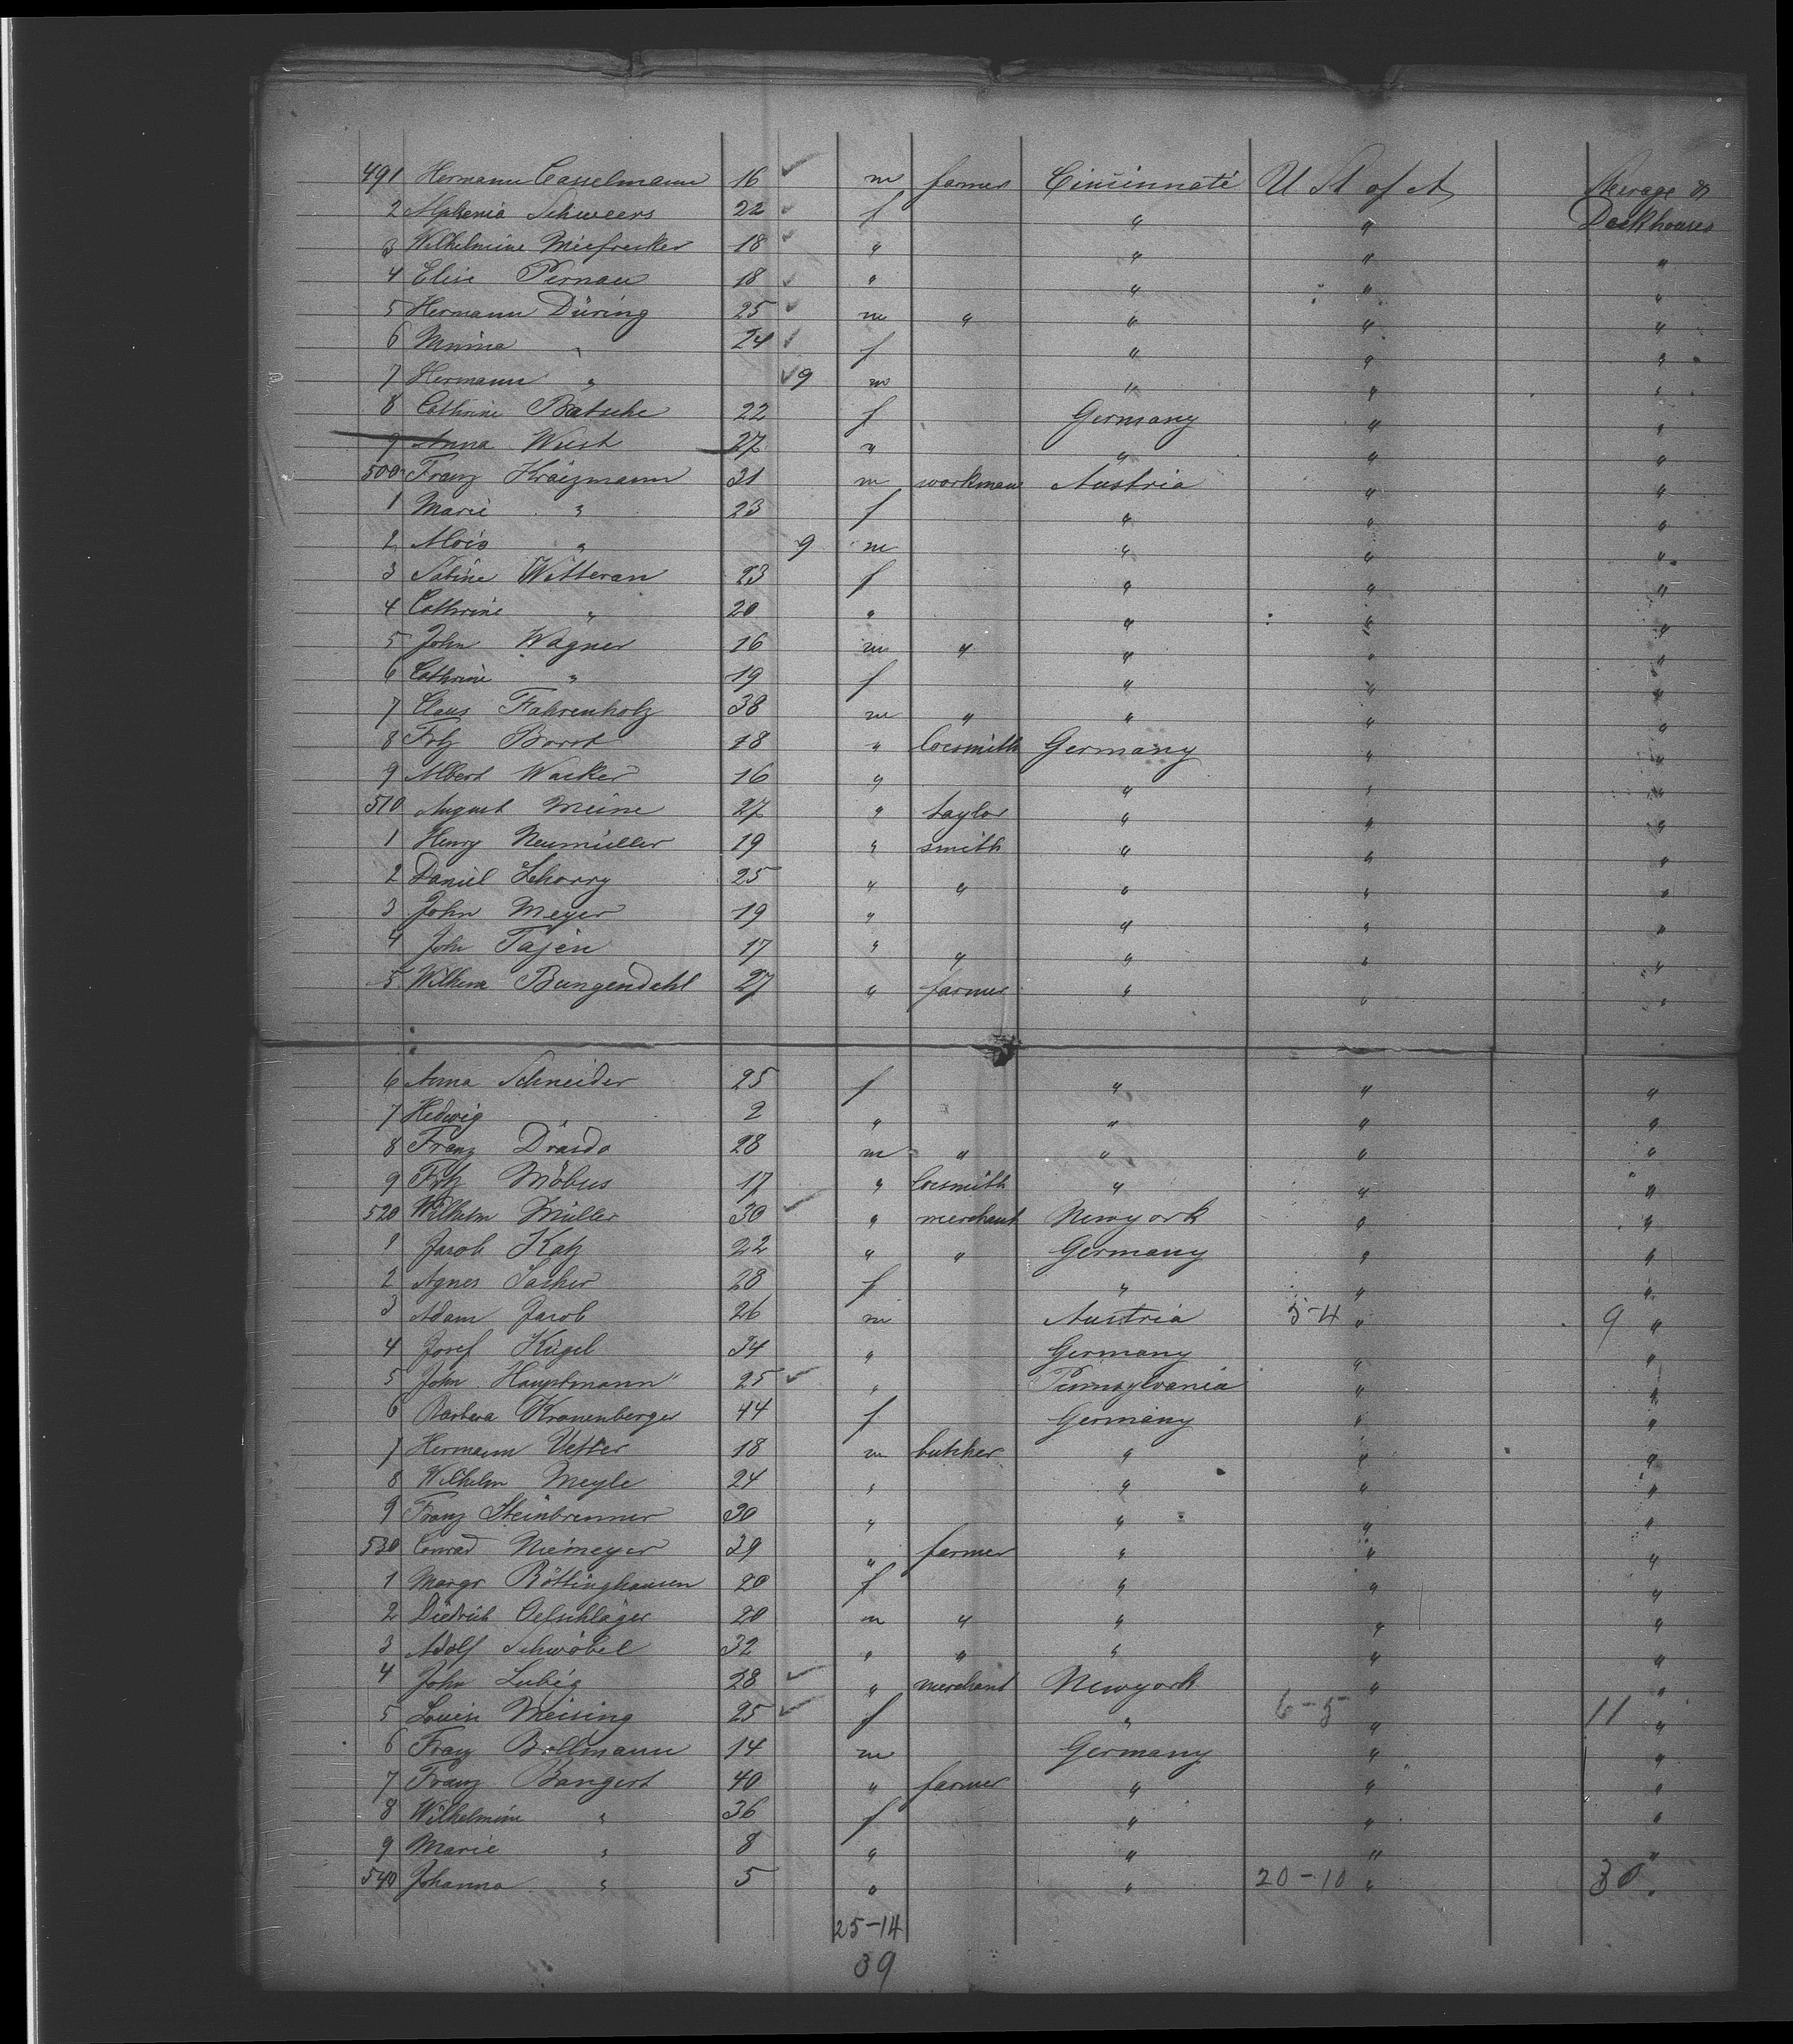 491 Hermann Casselmann 16 ✓ m farmer Cincinnati U St of A Steerage &
2 Schweers 22 ✓ f " " Deckhouses
3 Wilhelmine 18 ✓ " " " "
4 Elise Pernau 18 ✓ " " " "
5 Hermann Düring 25 ✓ m " " " "
6 Minna " 24 ✓ f " " "
7 Hermann " ✓ 9 m " " "
8 Cathrine Batsche 22 f Germany " "
9 Anna Wust 27 " " " "
500 Franz Kraizmann 31 m workman Austria " "
1 Marie " 23 f " " "
2 Alois " 9 m " " "
3 Sabine Witteran 23 f " " "
4 Cathrine " 20 " " " "
5 John Wagner 16 m " " " "
6 Cathrine " 19 f " " "
7 Claus Fahrenholz 38 m " " " "
8 Fritz Borst 18 " locsmith Germany " "
9 Albert Wacker 16 " " " "
510 August Meine 27 " taylor " " "
1 Henry Neumüller 19 " smith " " "
2 Daniel 25 " " " " "
3 John Meyer 19 " " " "
4 John Tajen 17 " " " " "
5 Wilhem Bungendahl 27 " farmer " " "
6 Anna Schneider 25 f " " "
7 Hedwig 2 " " " "
8 Franz Drasdo 28 m " " " "
9 Fritz Möbus 17 " locsmith " " "
520 Wilhelm Müller 30 ✓ " merchant Newyork " "
1 Jacob Katz 22 " " Germany " "
2 Agnes Sacher 28 f " " "
3 Adam Jacob 26 m Austria 5-4 " 9 "
4 Josef Kugel 34 " Germany " "
5 John Hauptmann 25 ✓ " Pennsylvania " "
6 Barbara Kronenberger 44 f Germany " "
7 Hermann Vetter 18 m butcher " " "
8 Wilhelm Meyle 24 " " " "
9 Franz Steinbrenner 30 " " " "
530 Conrad Niemeyer 39 " farmer " " "
1 Margr Böttinghausen 20 f " " "
2 Diedrich Oelschläger 20 m " " " "
3 Adolf Schwöbel 32 " " " " "
4 John Lubig 28 ✓ " merchant Newyork " "
5 Louise Meising 25 ✓ f " 6-5 " 11 "
6 Franz Bollmann 14 m Germany " "
7 Franz Bangert 40 " farmer " " "
8 Wilhelmine " 36 f " " "
9 Marie " 8 " " " "
540 Johanna " 5 " " 20-10 " 30 "
25-14
39